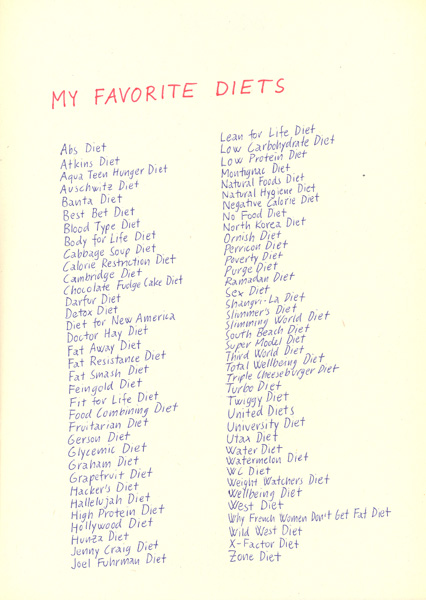 MY FAVORITE DIETS
Abs Diet
Atkins Diet
Aqua Teen Hunger Diet
Auschwitz Diet
Banta Diet
Best Bet Diet
Blood Type Diet
Body for Life Diet
Cabbage Soup Diet
Calorie Restriction Diet
Cambridge Diet
Chocolate Fudge Cake Diet
Darfur Diet
Detox Diet
Diet for New America
Doctor Hay Diet
Fat Away Diet
Fat Resistance Diet
Fat Smash Diet
Feingold Diet
Fit for Life Diet
Food Combining Diet
Fruitarian Diet
Gerson Diet
Glycemic Diet
Graham Diet
Grapefruit Diet
Hacker's Diet
Hallelujah Diet
High Protein Diet
Hollywood Diet
Hunza Diet
Jenny Craig Diet
Joel Fuhrman Diet
Lean for Life Diet
Low Carbohydrate Diet
Low Protein Diet
Montignac Diet
Natural Foods Diet
Natural Hygiene Diet
Negative Calorie Diet
No Food Diet
North Korea Diet
Ornish Diet
Perricon Diet
Poverty Diet
Purge Diet
Ramadan Diet
Sex Diet
Shangri-La Diet
Slimmer's Diet
Slimming World Diet
South Beach Diet
Super Model Diet
Third World Diet
Total Wellbeing Diet
Triple Cheeseburger Diet
Turbo Diet
Twiggy Diet
United Diets
University Diet
Utax Diet
Water Diet
Watermelon Diet
WC Diet
Weight Watchers Diet
Wellbeing Diet
West Diet
Why French Women Don't Get Fat Diet
Wild West Diet
X-Factor Diet
Zone Diet